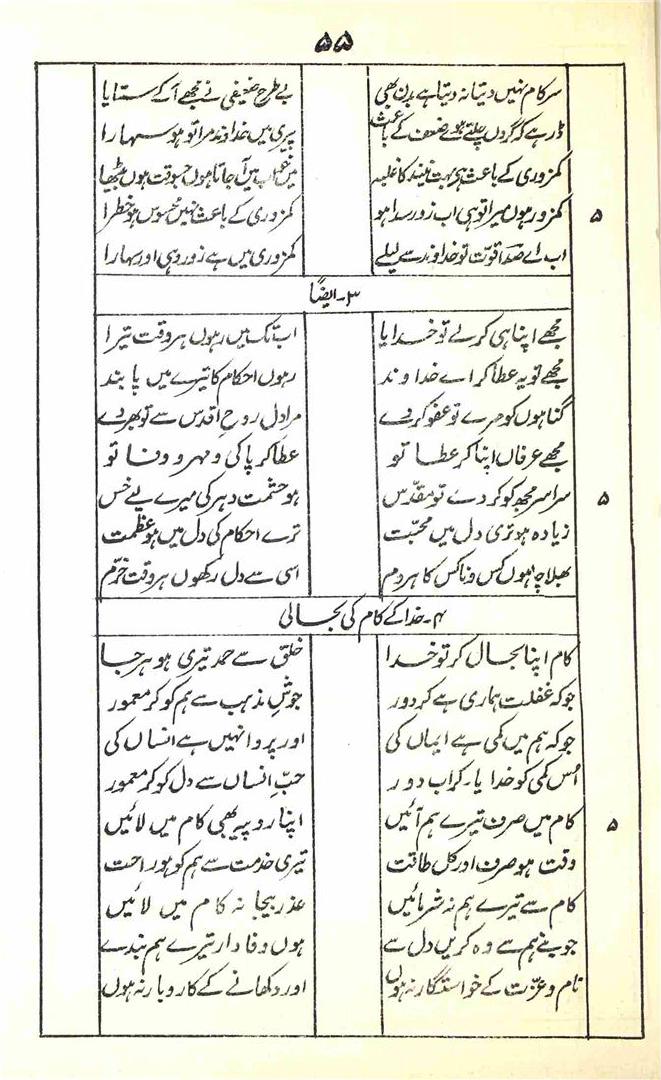 ۵۵
سر کام نہیں دیتا نہ دیتا ہے بدن بھی بے طرح ضعیفی نے مجھے آ کے ستایا
ڈر ہے کہ گروں چلتے ہوئے ضعف کے باعث پیری میں خداوند مرا تو ہو سہارا
کمزوری کے باعث ہی بہت نیند کا غلبہ میں خواب میں آ جاتا ہوں جسوقت ہوں بیٹھا
۵ کمزور ہوں میرا تو ہی اب زور سدا ہو کمزوری کے باعث نہیں محسوس ہو خطرا
اب اے صداقوت تو خداوند سے لیلے کمزوری میں ہے زور وہی اور سہارا
۳۔ ایضًا
مجھے اپنا ہی کر لے تو خدایا اب تک میں رہوں ہر وقت تیرا
مجھے تو یہ عطا کر اے خداوند رہوں احکام کا تیرے میں پابند
گناہوں کو مرے تو عفو کر دے مرا دل روحِ اقدس سے تو بھر دے
مجھے عرفاں اپنا کر عطا تو عطا کر پاکی و مہر و وفا تو
۵ سراسر مجھ کو کر دے تو مقدّس ہو حشمت دہر کی میرے لیے خس
زیادہ ہو تری دل میں محبّت ترے احکام کی دل میں ہو عظمت
بھلا چاہوں کس و ناکس کا ہر دم اسی سے دل رکھوں ہر وقت خرّم
۴۔ خدا کے کام کی بحالی
کام اپنا بحال کر تو خدا خلق سے حمد تیری ہو ہر جا
جو کہ غفلت ہماری ہے کر دور جوشِ مذہب سے ہم کو کر معمور
جو کہ ہم میں کمی ہے ایماں کی اور پروا نہیں ہے انساں کی
اُس کمی کو خدایا۔ کر اب دور حبِّ انساں سے دل کو کر معمور
۵ کام میں صرف تیرے ہم آئیں اپنا روپیہ بھی کام میں لائیں
وقت ہو صرف اور کل طاقت تیری خدمت سے ہم کو ہو راحت
کام سے تیرے ہم نہ شرمائیں عذر بیجا نہ کام میں لائیں
جو بنے ہم سے وہ کریں دل سے ہوں وفادار تیرے ہم بندے
نام و عزّت کے خواستگار نہ ہوں اور دکھانے کے کاروبار نہ ہوں